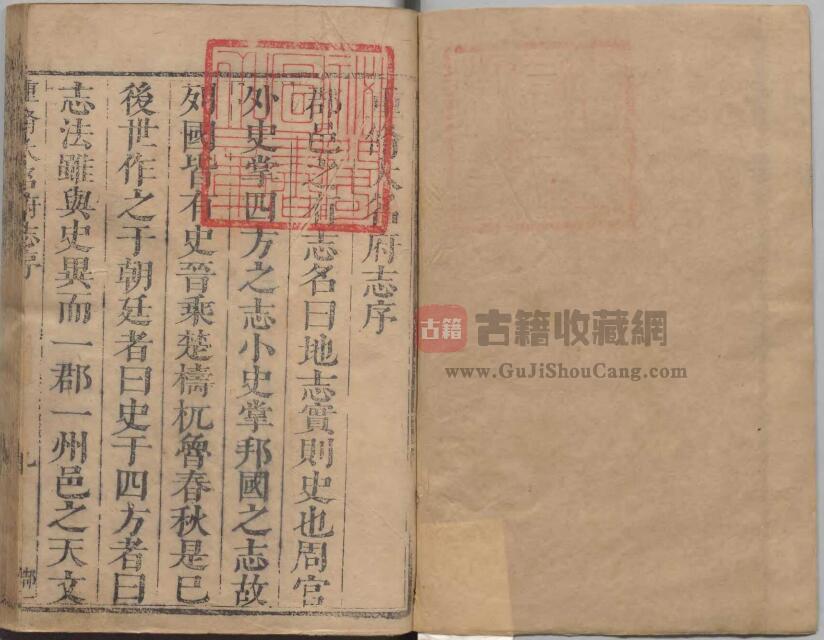 重脩大名府志序
郡邑之有志名曰地志實則史也周官
外史掌四方之志小史掌邦國之志故
列國皆有史晉乘楚檮杌魯春秋是已
後世作之于朝廷者曰史于四方者曰
志法雖與史異而一郡一州邑之天文
重脩大名府志序
古籍 古籍收藏網
www.GuJiShouCang.com